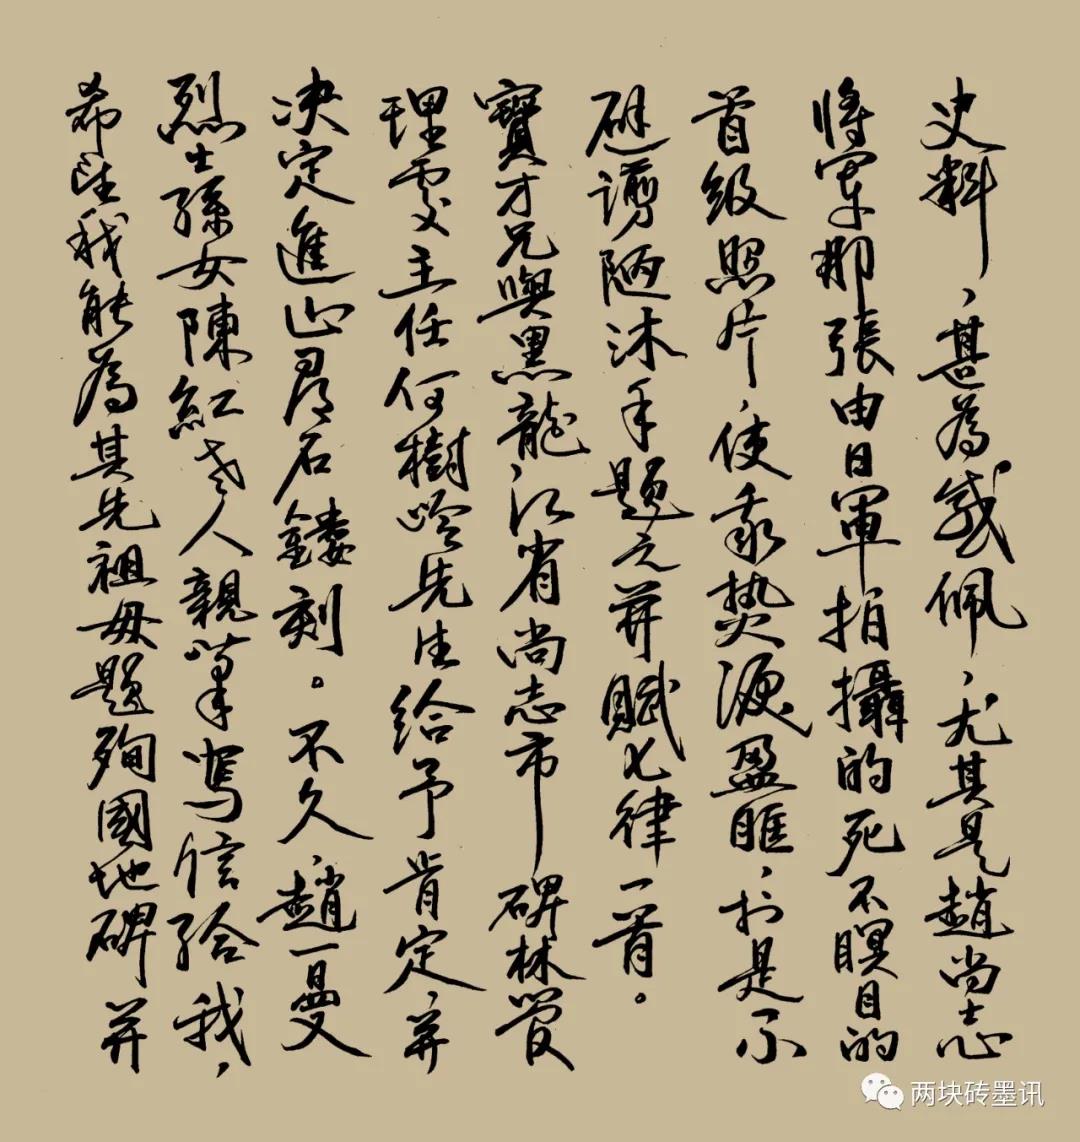 史料，甚為感佩，尤其是趙尚志
將軍那張由日軍拍攝的死不瞑目的
首級照片，使我熱淚盈眶，於是不
避譾陋沐手題之并賦七律一首。
寶才兄與黑龍江省尚志市碑林管
理處主任何樹嶺先生給予肯定，并
决定進山尋石鏤刻。不久，趙一曼
烈士孫女陳紅老人親筆寫信給我，
希望我能為其先祖母題殉國地碑并
两块砖墨讯